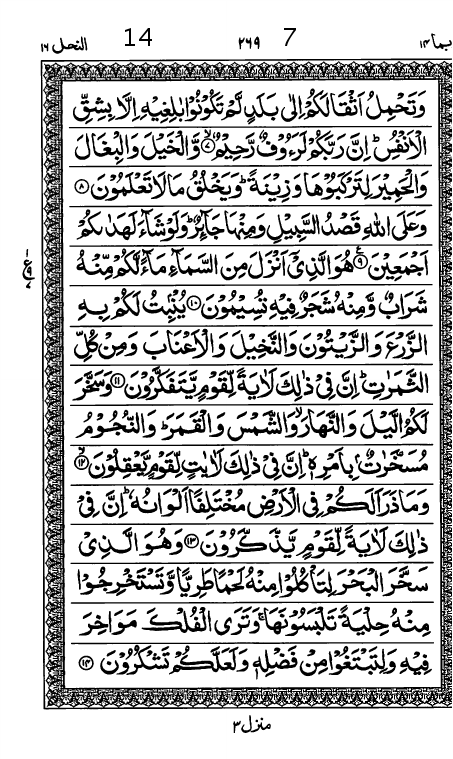 النحل ١٦ 14 ٢٦٩ 7 ربما ١٤
وَتَحْمِلُ اَثْقَالَكُمْ اِلٰى بَلَدٍ لَّمْ تَكُوْنُوْا بٰلِغِيْهِ اِلَّا بِشِقِّ
الْاَنْفُسِ ؕ اِنَّ رَبَّكُمْ لَرَءُوْفٌ رَّحِيْمٌ ۙ﴿۷﴾ وَّالْخَيْلَ وَالْبِغَالَ
وَالْحَمِيْرَ لِتَرْكَبُوْهَا وَزِيْنَةً ؕ وَيَخْلُقُ مَا لَا تَعْلَمُوْنَ ﴿۸﴾
وَعَلَى اللّٰهِ قَصْدُ السَّبِيْلِ وَمِنْهَا جَآئِرٌ ؕ وَلَوْ شَآءَ لَهَدٰىكُمْ
اَجْمَعِيْنَ ﴿۹﴾ هُوَ الَّذِيْۤ اَنْزَلَ مِنَ السَّمَآءِ مَآءً لَّكُمْ مِّنْهُ
شَرَابٌ وَّمِنْهُ شَجَرٌ فِيْهِ تُسِيْمُوْنَ ﴿۱۰﴾ يُنْۢبِتُ لَكُمْ بِهِ
الزَّرْعَ وَالزَّيْتُوْنَ وَالنَّخِيْلَ وَالْاَعْنَابَ وَمِنْ كُلِّ
الثَّمَرٰتِ ؕ اِنَّ فِيْ ذٰلِكَ لَاٰيَةً لِّقَوْمٍ يَّتَفَكَّرُوْنَ ﴿۱۱﴾ وَسَخَّرَ
لَكُمُ الَّيْلَ وَالنَّهَارَ ۙ وَالشَّمْسَ وَالْقَمَرَ ؕ وَالنُّجُوْمُ
مُسَخَّرٰتٌۢ بِاَمْرِهٖ ؕ اِنَّ فِيْ ذٰلِكَ لَاٰيٰتٍ لِّقَوْمٍ يَّعْقِلُوْنَ ۙ﴿۱۲﴾
وَمَا ذَرَاَ لَكُمْ فِي الْاَرْضِ مُخْتَلِفًا اَلْوَانُهٗ ؕ اِنَّ فِيْ
ذٰلِكَ لَاٰيَةً لِّقَوْمٍ يَّذَّكَّرُوْنَ ﴿۱۳﴾ وَهُوَ الَّذِيْ
سَخَّرَ الْبَحْرَ لِتَاْكُلُوْا مِنْهُ لَحْمًا طَرِيًّا وَّتَسْتَخْرِجُوْا
مِنْهُ حِلْيَةً تَلْبَسُوْنَهَا ۚ وَتَرَى الْفُلْكَ مَوَاخِرَ
فِيْهِ وَلِتَبْتَغُوْا مِنْ فَضْلِهٖ وَلَعَلَّكُمْ تَشْكُرُوْنَ ﴿۱۴﴾
منزل ٣